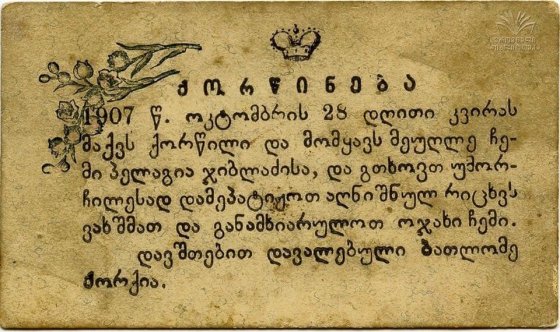 ქორწინება
1907 წ. ოკტომბრის 28 დღითი კვირას
მაქვს ქორწილი და მომყავს მეუღლე ჩე-
მი პელაგია ჯიბლაძისა, და გთხოვთ უმორ-
ჩილესად დამეპატიჟოთ აღნიშნულ რიცხვს
ვახშმათ და განამხიარულოთ ოჯახი ჩემი.
დავშთებით დავალებული ბათლომე
ჟორჟია.